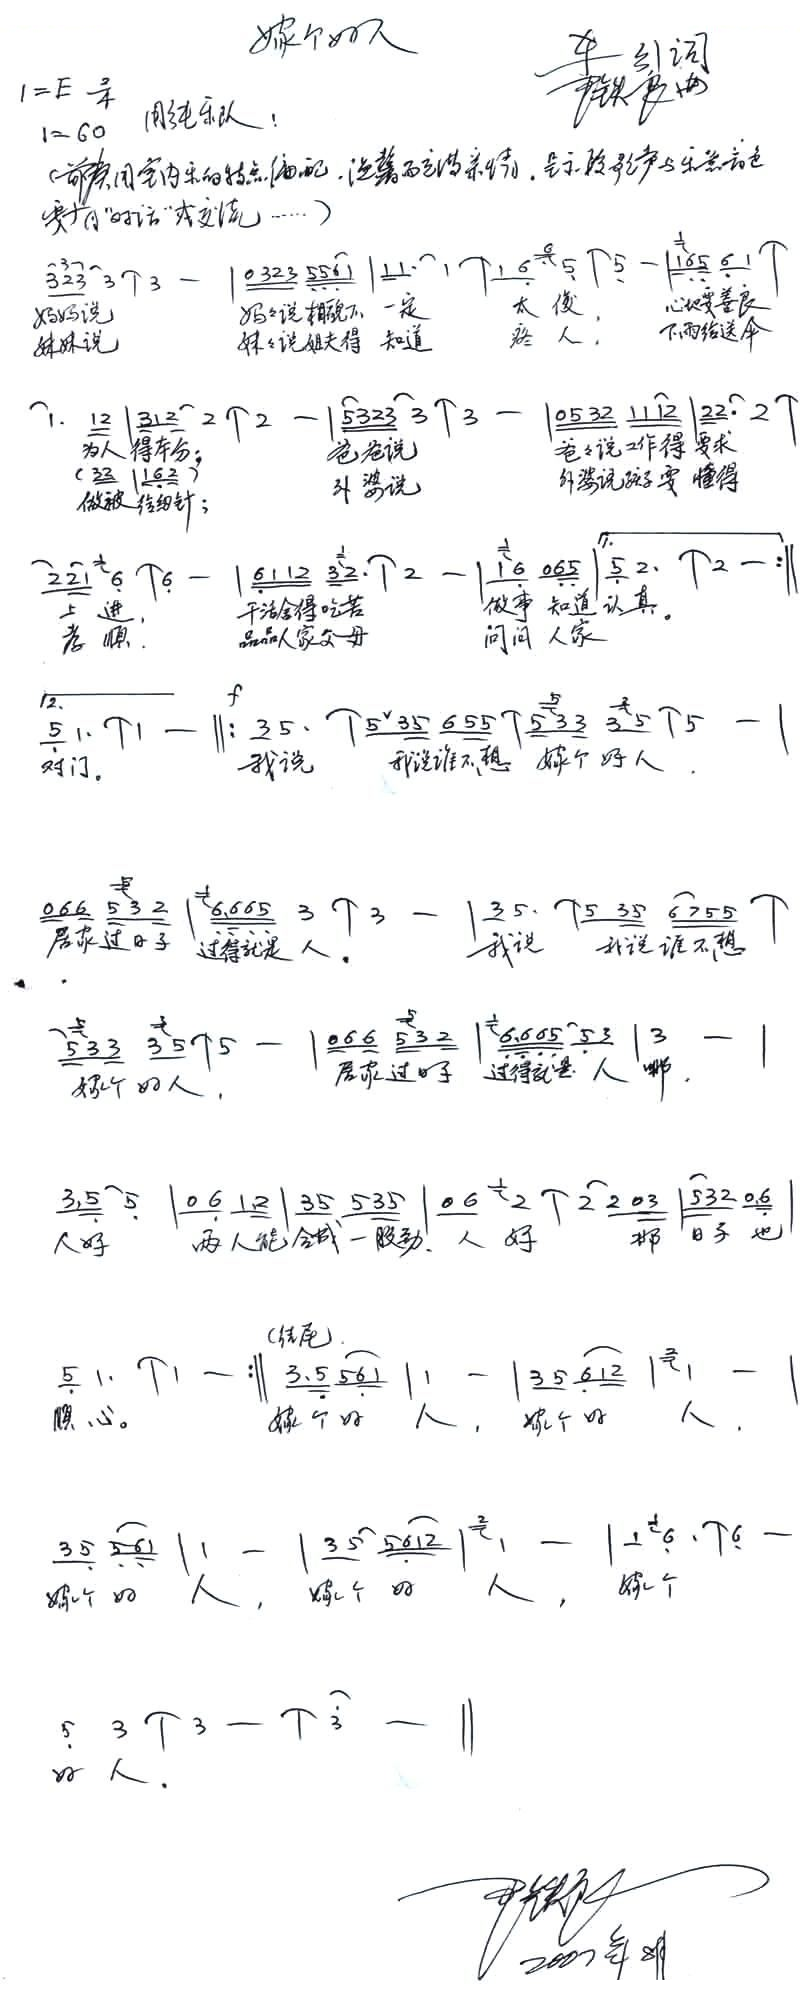 嫁个好人
1=E 2/4
词
尹铁良 曲
1=60 用纯乐队!
(前奏用室内乐的特点编配.温馨而充满亲情.
要有"对话"或交流……)
323 3 3 — | 0323 5561 | 11. 1 16 5 5 — | 165 61
妈妈说 妈妈说相貌不一定太俊, 心地要善良
妹妹说 妹妹说姐夫得知道疼人, 下雨给送伞
1. 12 | 312 2 2 — | 5323 3 3 — | 0532 1112 | 22. 2
为人得本分; 爸爸说 爸爸说工作得要求
(33 | 162)
做被给纫针; 外婆说 外婆说孩子要懂得
221 6 6 — | 6112 32. 2 — | 16 065 | 1. 52. 2 — :||
上进, 干活舍得吃苦 做事知道认真。
孝顺. 品品人家父母 问问人家
2. f
51. 1 — ||: 35. 5 35 655 533 35 5 — |
对门。 我说 我说谁不想 嫁个好人.
066 532 | 6.665 3 3 — | 35. 5 35 6755
居家过日子 过得就是人。 我说 我说谁不想
533 35 5 — | 066 532 | 6.665 53 | 3 — |
嫁个好人, 居家过日子 过得就是人哪.
3.5 5 | 06 1.2 | 35 535 | 06 2 2 2 03 | 532 0.6 |
人好 两人能合成一股劲. 人好 那日子也
(结尾).
51. 1 — :|| 3.5 561 | 1 — | 35 612 | 1 — |
顺心。 嫁个好人, 嫁个好人.
35 561 | 1 — | 35 5612 | 1 — | 1 6. 6 —
嫁个好人, 嫁个好人, 嫁个
5 3 3 — 3 — ||
好人.
尹铁良
2007年8月